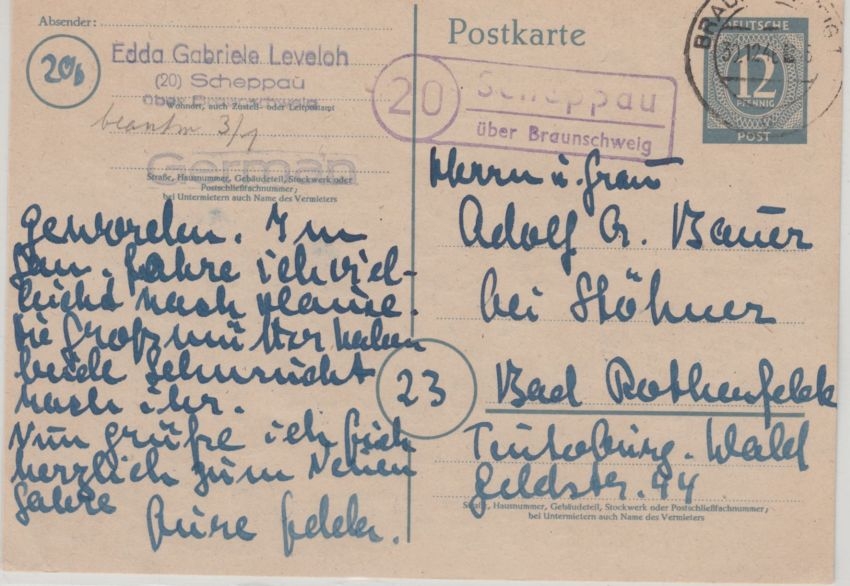 Absender:
Edda Gabriele Leveloh
(20) Scheppau
über Braunschweig
Wohnort, auch Zustell- oder Leitpostamt
20b
beantw. 3/1
German
Straße, Hausnummer, Gebäudeteil, Stockwerk oder
Postschließfachnummer;
bei Untermietern auch Name des Vermieters
geworden. Im
Jan. fahre ich viel-
leicht nach Hause.
Die Großmütter haben
beide Sehnsucht
nach ihr.
Nun grüße ich
herzlich zum Neuen
Jahre
Eure Edda.
Postkarte
20
Scheppau
über Braunschweig
DEUTSCHE
12
PFENNIG
POST
Herrn u. Frau
Adolf G. Bauer
bei Stöhner
23
Bad Rothenfelde
Teutoburg. Wald
Feldstr. 44
Straße, Hausnummer, Gebäudeteil, Stockwerk oder Postschließfachnummer;
bei Untermietern auch Name des Vermieters